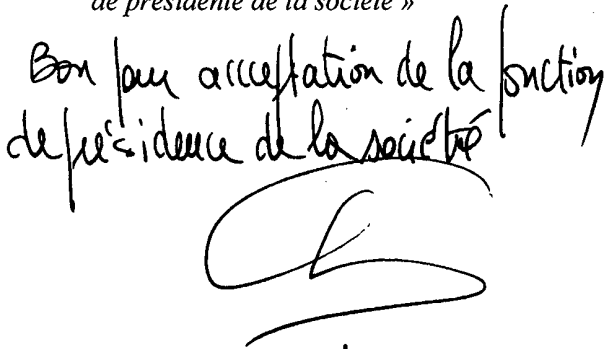 de présidente de la société »
Bon pour acceptation de la fonction
de présidence de la société